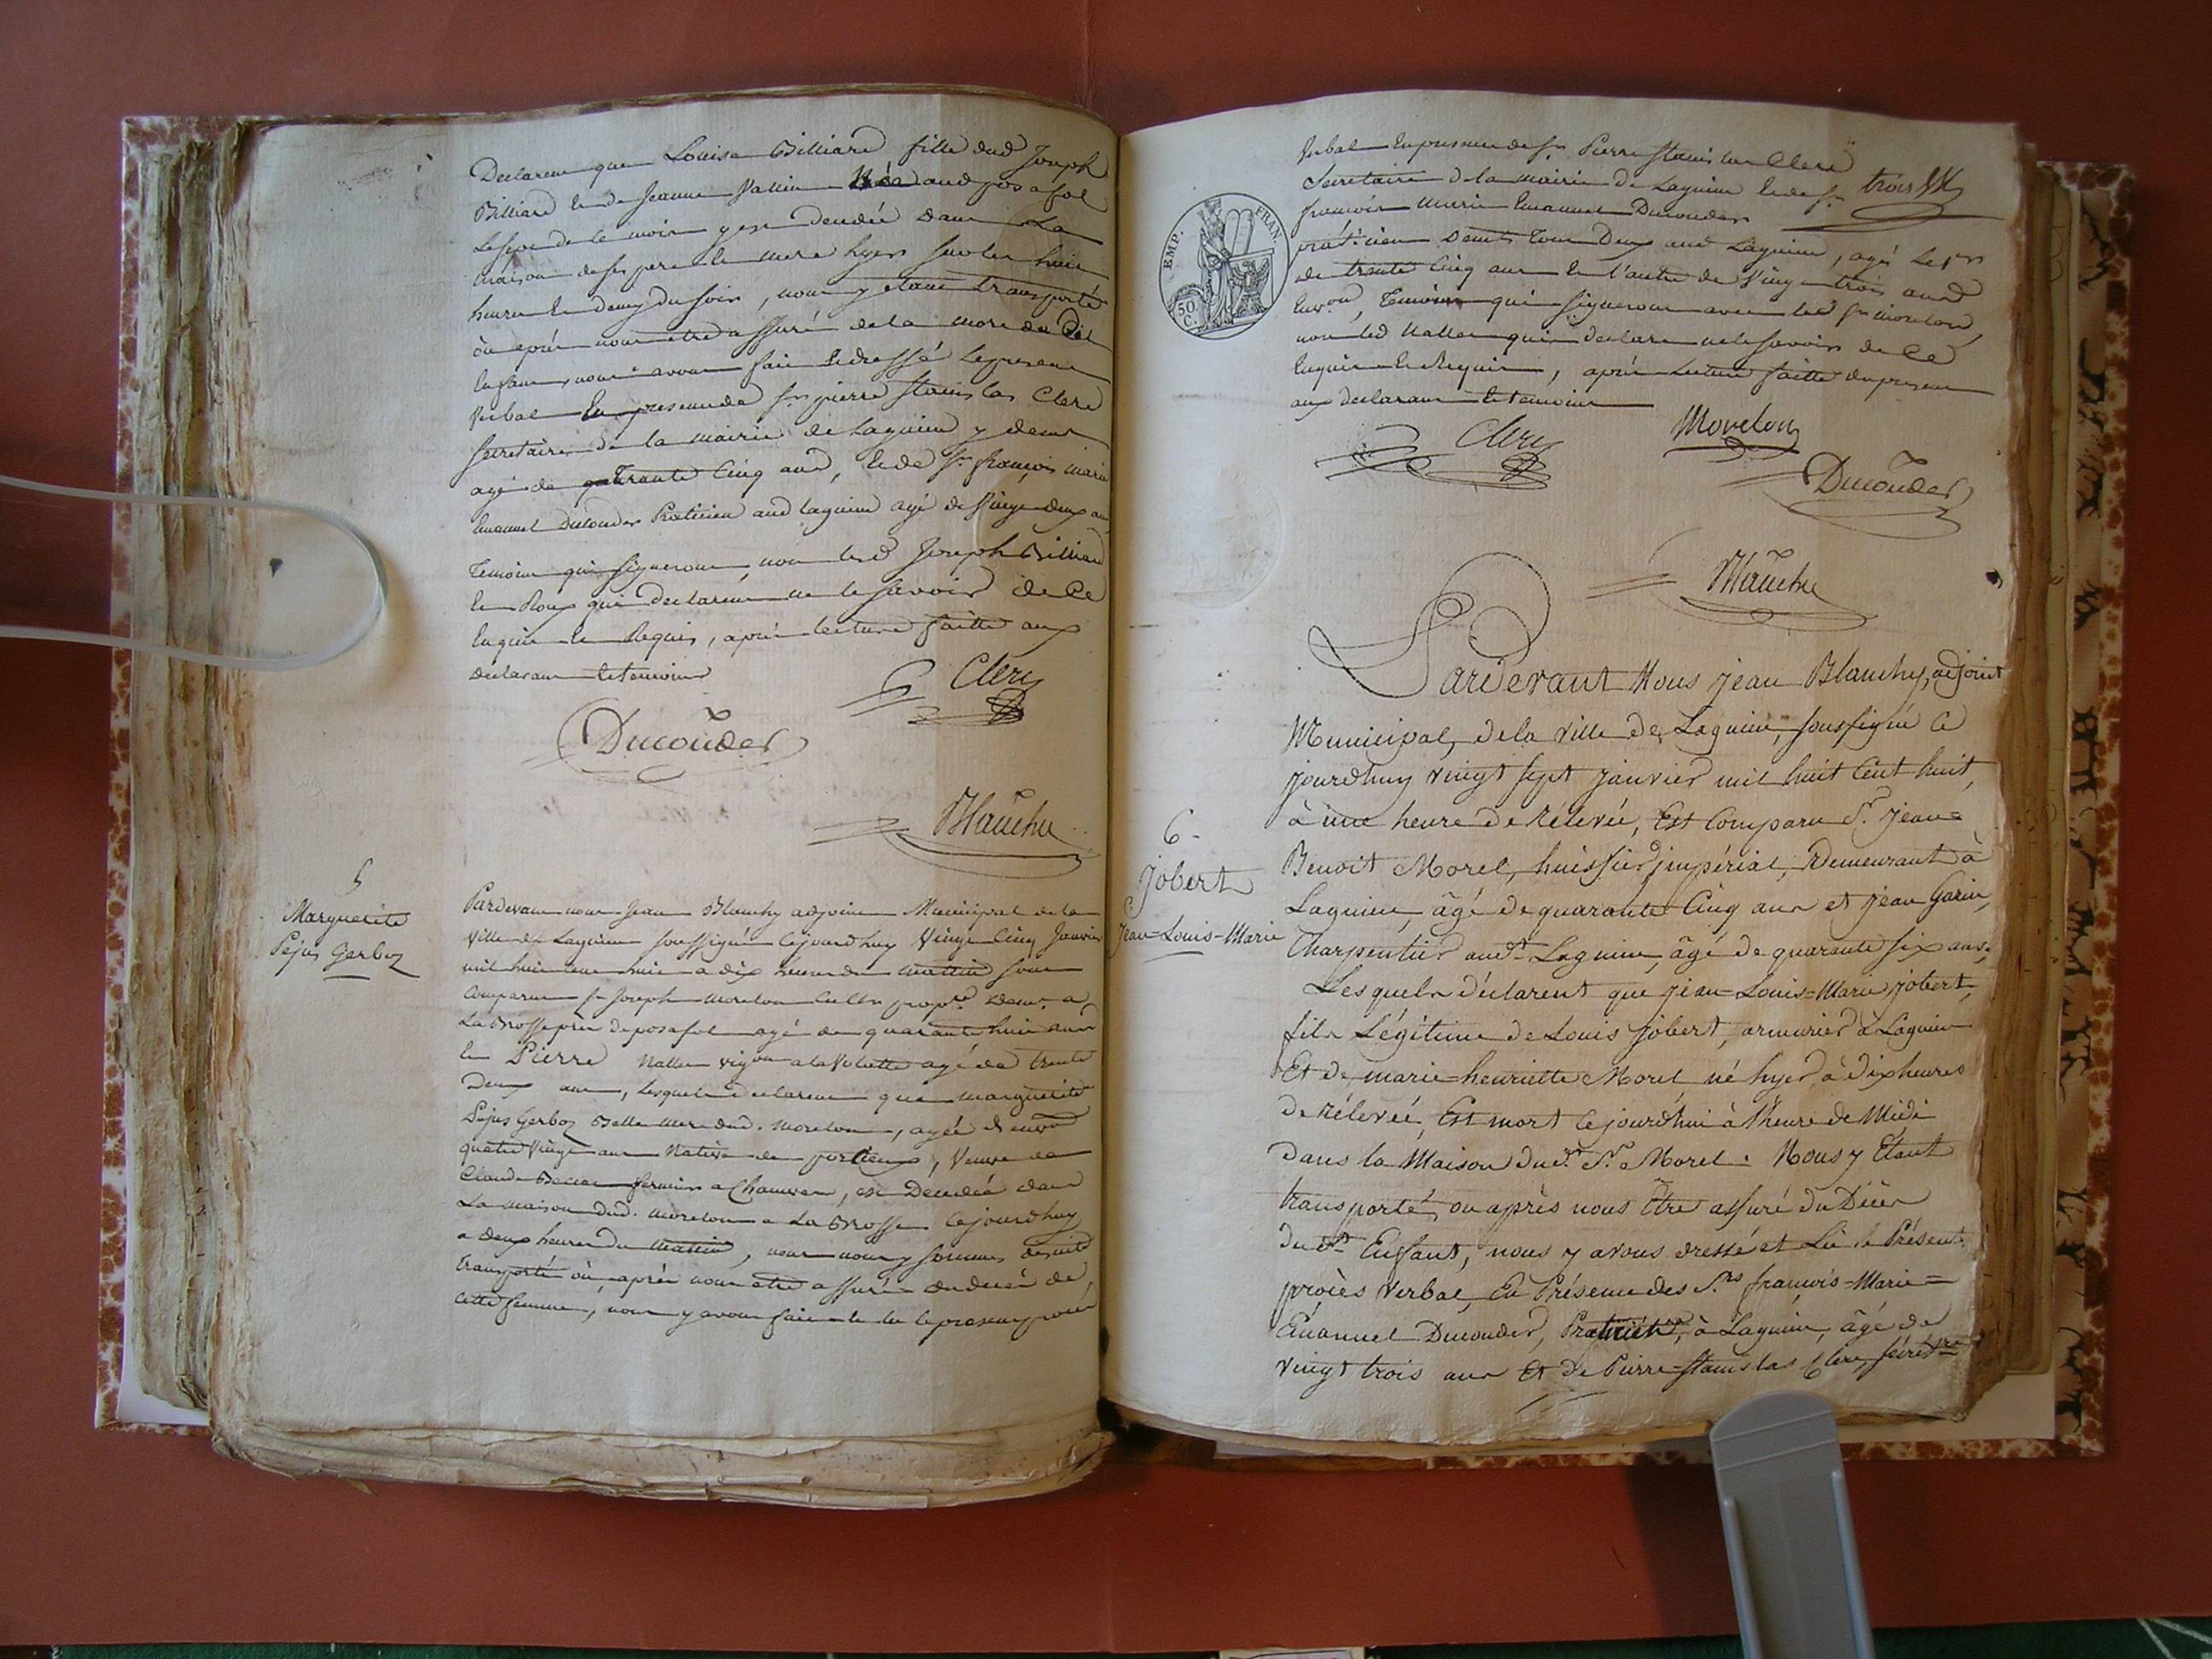 Declarent que Louise Billiard fille dud Joseph
Billiard et de Jeanne Vallin Née aud posafol
le sept de ce mois y est decedée dans La
maison de ses pere et mere hyer sur les huit
heures et demy du soir, nous y etant transporté
où après nous etre assuré de la mort du dit
Enfant, nous avons fait et dressé le present
Verbal En presence de sr pierre Stanislas Clerc
secretaire de la mairie de Lagnieu y demt
agé de quarante Cinq ans, et de Sr françois marie
Emanuel Ducouder Praticien aud lagnieu agé de Vingt deux ans
Temoins qui signeront, non led Joseph Billiard
et Roux qui declarent ne le savoir de ce
Enquis et Requis, après lecture faitte aux
declarans et temoins
Clerc
Ducouder
Blanchy
5
Marguerite
Pejus Gerboz
Pardevant nous Jean Blanchy adjoint Municipal de la
Ville de Lagnieu soussigné Cejourdhuy Vingt Cinq Janvier
mil huit cent huit a dix heures du mattin sont
Comparus sr Joseph morelon Cultr propre demt a
La Brosse près de posafol agé de quarante huit ans
et Pierre Nallet vigon a la Volette agé de trente
Deux ans, Lesquels declarent que marguerite
Pejus Gerboz Belle mere dud. morelon, agée d'environ
quatre Vingt ans Native de , Veuve de
Claude fermier a , est Decedée dans
La maison dud. morelon a La Brosse Cejourdhuy
a deux heures du mattin, nous nous y sommes desuite
transporté où après nous etre assuré du decés de
cette femme, nous y avons fait et lu le present procés
Verbal En presence de sr Pierre Stanislas Clerc
Secretaire de la mairie de Lagnieu et de sr
françois marie Emanuel Ducouder
praticien demts tous Deux aud Lagnieu, agé Le pr
de trente Cinq ans et l'autre de Vingt trois ans
Envon, Temoins qui signeront avec led sr morelon,
non led Nallet qui declare ne le savoir de Ce
Enquis et Requis, après Lecture faitte du present
aux declarans et temoins
trois
EMP. FRAN.
50 C.
Clerc
Morelon
Ducouder
Blanchy
6
Jobert
Jean-Louis-Marie
Pardevant Nous Jean Blanchy, adjoint
Municipal, de la ville de Lagnieu, soussigné Ce
jourdhuy vingt sept janvier mil huit Cent huit,
à une heure de rélevée, Est Comparu Sr. Jean=
Benoit Morel, huissier jmpérial, Demeurant à
Lagnieu, âgé de quarante Cinq ans et Jean Garin,
Charpentier audt. Lagnieu, âgé de quarante six ans,
Lesquels déclarent que jean=Louis=Marie jobert,
fils Légitime de Louis jobert, armurier à Lagnieu
Et de marie=henriette Morel, né hyer, à dix heures
de rélevée, Est mort Cejourd'hui à l'heure de Midi
dans la Maison dud. Sr. Morel. Nous y Etant
transporté, ou après nous Etre assuré du Décès
dudt Enfant, nous y avons dressé et Lu le Présent
procès Verbal, En Présence des Srs. françois=Marie=
Emanuel Ducouder, Praticien, à Lagnieu, âgé de
vingt trois ans Et de Pierre=Stanislas Clerc, sécretre